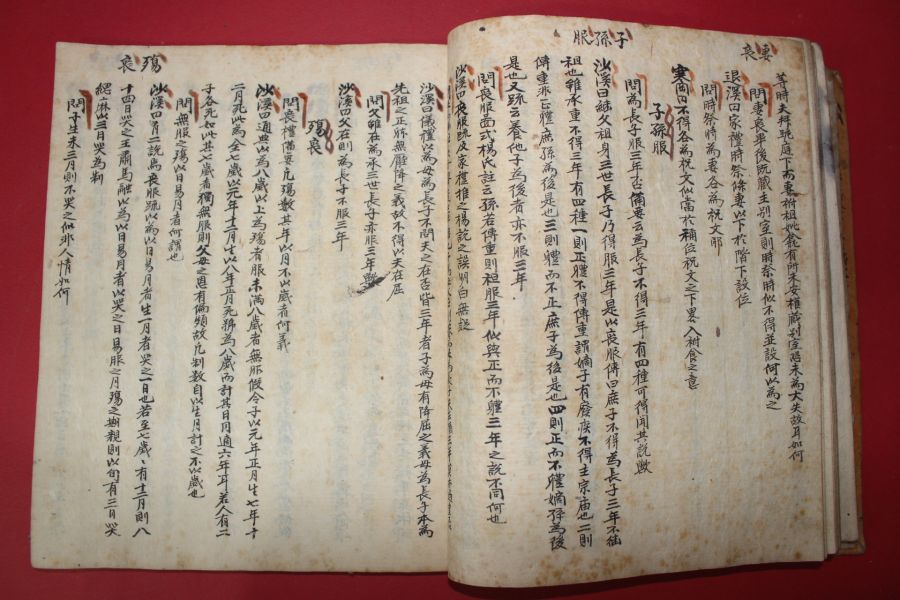 妻喪
等時夫拜跪庭下而妻祔祖妣龕有所未安權藏別室恐未爲大失故耳如何
問妻喪卒後旣藏主別室則時祭時似不得並設何以爲之
退溪曰家禮時祭條妻以下於階下設位
問時祭時爲妻各爲祝文耶
寒岡曰不得各爲祝文似當於祢位祝文之下累入祔食之意
子孫服
子孫服
問爲長子服三年否備要云爲長子不得三年有四種可得聞其說歟
沙溪曰結父祖身三世長子乃得服三年是以喪服傳曰庶子不得爲長子三年不継
祖也雖承重不得三年有四種一則正體不得傳重謂嫡子有廢疾不得主宗庙也二則
傳重非正體庶孫爲後是也三則體而不正庶子爲後是也四則正而不體嫡孫爲後
是也又疏云養他子爲後者亦不服三年
問喪服啚式楊氏註云孫若傳重則祖服三年似與正而不體三年之說不同何也
沙溪曰喪服疏及家禮推之楊說之誤明白無疑
殤喪
沙溪曰儀禮以爲母爲長子不問夫之在否皆三年者子爲母有降屈之義母爲長子本爲
先祖之正軆無厭降之義故不得以夫在屈
問父雖在爲承三世長子亦服三年
沙溪曰父在則爲長子不服三年
殤喪
問喪禮備要凡殤數其年以月不以歲者何義
沙溪曰通典以爲八歲以上爲殤者服未滿八歲者無服假令子以元年正月生七年十
二月死此爲全七歲以元年十二月生以八年正月死稱爲八歲而計其日月適六年耳若人有二
子各死如此其七歲者獨無服則父母之恩有偏頗故凡制數自以生月計之不以歲也
問無服之殤以日易月者何謂也
沙溪曰有二說馬喪服疏以爲以日易月者生一月者哭之一日也若至七歲歲有十二月則八
十四日哭之王肅馬融以爲以日易月者以哭之日易服之月殤之期親則以旬有三日哭
緦麻以三日哭爲制
問子生未三月則不哭之似非人情如何